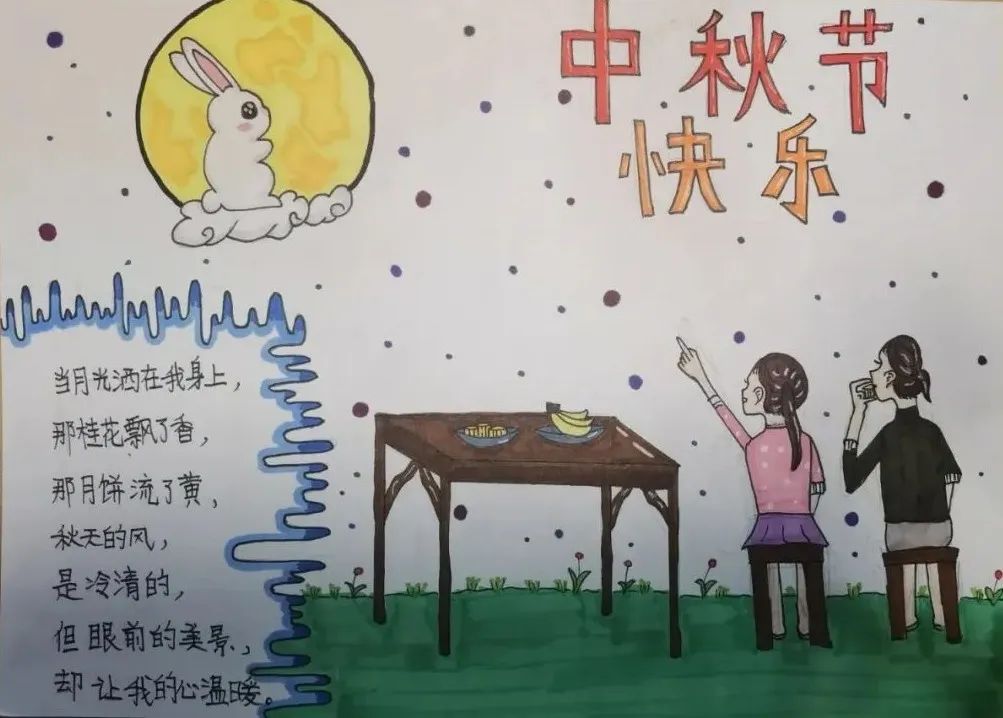 中秋节
快乐
当月光洒在我身上，
那桂花飘了香，
那月饼流了黄，
秋天的风，
是冷清的，
但眼前的美景，
却让我的心温暖。